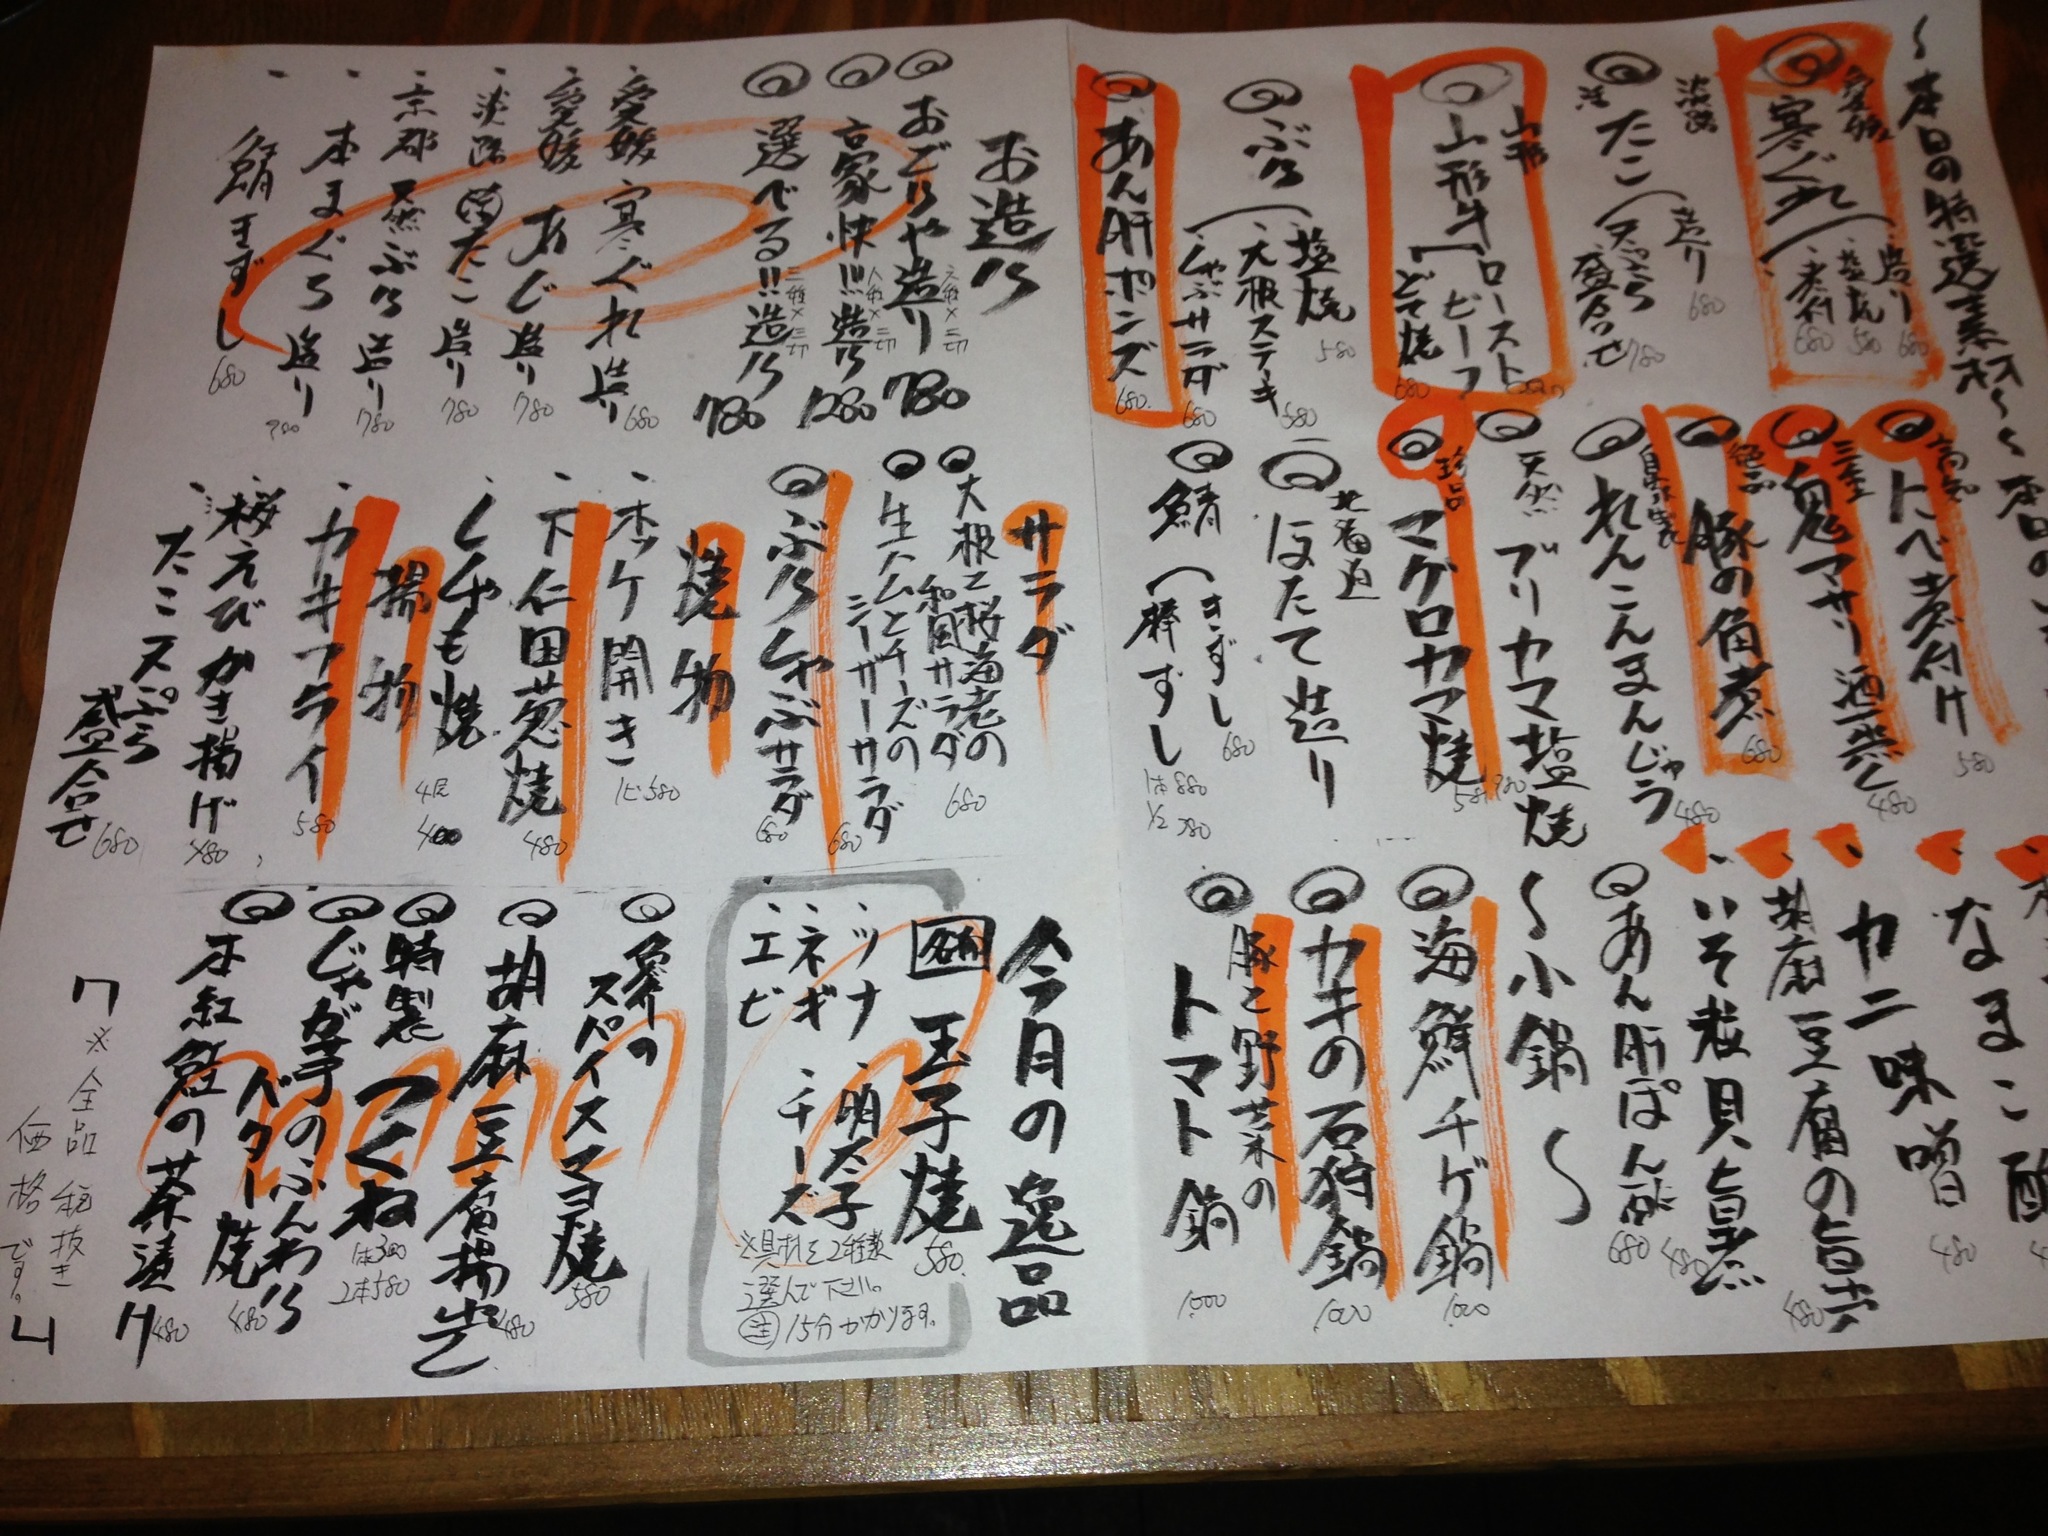 〜本日の特選素材〜
愛媛
寒ぐれ
造り 680
塩焼 580
煮付 680
淡路
活たこ
造り 680
天ぷら盛合せ 780
山形
山形牛
ローストビーフ
どて焼 680
ぶり
塩焼 580
大根ステーキ 580
しゃぶサラダ 680
あん肝ポンズ 680
高知
にべ煮付け 580
三重
鬼アサリ酒蒸し 480
絶品
豚の角煮 680
自家製
れんこんまんじゅう 480
天然
ブリカマ塩焼 980
珍品
マグロカマ焼 580
北海道
ほたて造り
鯖
きずし 680
棒ずし 1本 880
1/2 780
なまこ酢
カニ味噌 480
胡麻豆腐の旨煮 480
いそ粒貝旨煮 480
あん肝ぽん酢 680
〜小鍋〜
海鮮チゲ鍋 1,000
カキの石狩鍋 1,000
豚と野菜の
トマト鍋 1,000
お造り
おごりや造り 六種×二切 780
豪快!!!造り 八種×二切 1280
選べる!!造り 三種×三切 780
愛媛 寒ぐれ造り 680
愛媛 あじ造り 780
淡路 活たこ造り 780
京都 天然ぶり造り 780
本まぐろ造り 780
鯖きずし 680
サラダ
大根と桜海老の
和風サラダ 680
生ハムとチーズの
シーザーサラダ 680
ぶりしゃぶサラダ 680
焼物
ホッケ開き 1ピ 580
下仁田葱焼 480
ししゃも焼 4尾 400
揚物
カキフライ 580
桜えびかき揚げ 480
たこ天ぷら
盛合せ 680
今月の逸品
玉子焼 580
・ツナ ・明太子
・ネギ ・チーズ
・エビ
※具材を2種類
選んで下さい。
注 15分かかります。
スパイスマヨ焼 580
胡麻豆腐揚出し 480
特製
つくね 1本300
2本580
じゃが芋のふんわり
バター焼 480
本紅鮭の茶漬け 480
※全品税抜き
価格です。